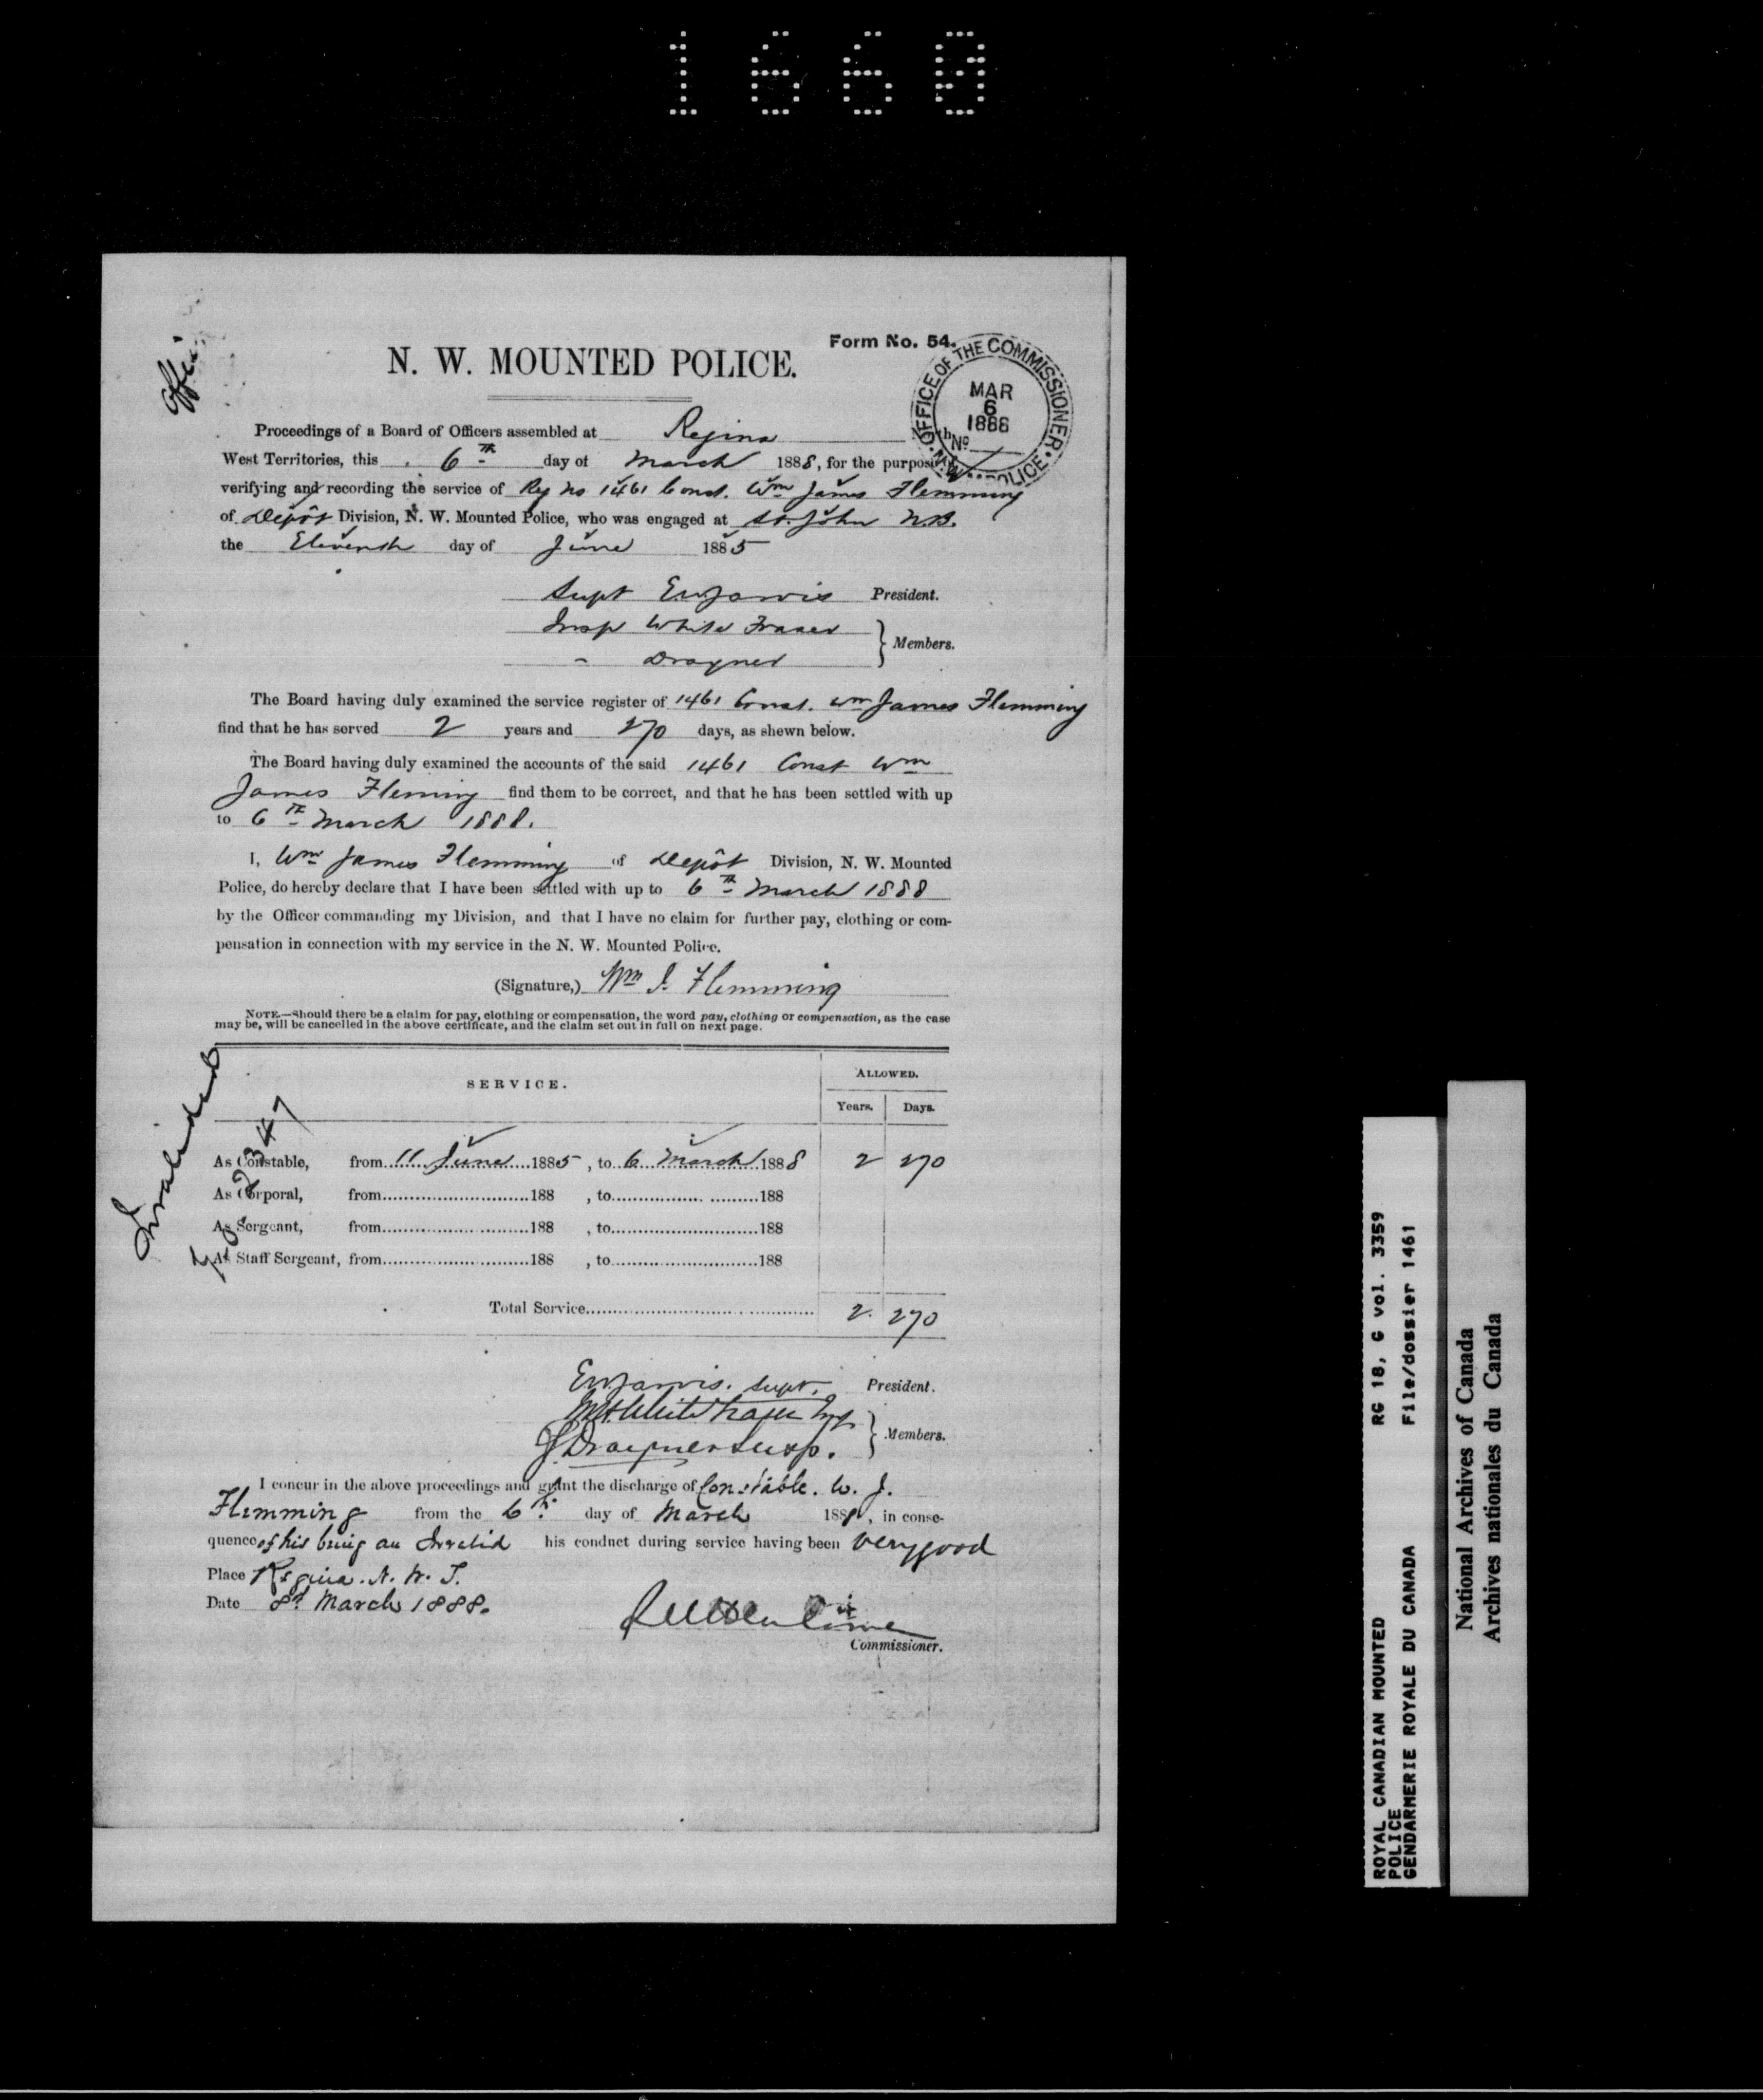 1660
Form No. 54.
N. W. MOUNTED POLICE.
OFFICE OF THE COMMISSIONER • N.W. POLICE •
MAR
6
1888
No
Proceedings of a Board of Officers assembled at Regina
West Territories, this 6th day of March 1888, for the purpose
verifying and recording the service of Reg No 1461 Const. Wm James Flemming
of Depôt Division, N. W. Mounted Police, who was engaged at St. John N.B.
the Eleventh day of June 1885
Supt EWJarvis President.
Insp White Fraser
" Drayner
Members.
The Board having duly examined the service register of 1461 Const. Wm James Flemming
find that he has served 2 years and 270 days, as shewn below.
The Board having duly examined the accounts of the said 1461 Const Wm
James Fleming find them to be correct, and that he has been settled with up
to 6th March 1888.
I, Wm James Flemming of Depôt Division, N. W. Mounted
Police, do hereby declare that I have been settled with up to 6th March 1888
by the Officer commanding my Division, and that I have no claim for further pay, clothing or com-
pensation in connection with my service in the N. W. Mounted Police.
(Signature,) Wm J. Flemming
NOTE.—Should there be a claim for pay, clothing or compensation, the word pay, clothing or compensation, as the case
may be, will be cancelled in the above certificate, and the claim set out in full on next page.
Invalided
SERVICE.
ALLOWED.
Years. Days.
As Constable, from 11 June 1885, to 6 March 1888 2 270
As Corporal, from 188 , to 188
As Sergeant, from 188 , to 188
As Staff Sergeant, from 188 , to 188
Total Service 2. 270
EWJarvis. Supt. President.
White Fraser Insp
JDrayner Insp.
Members.
I concur in the above proceedings and grant the discharge of Constable. W. J.
Flemming from the 6th day of March 1888, in conse-
quence of his being an Invalid his conduct during service having been very good
Place Regina. N. W. T.
Date 8th March 1888.
Commissioner.
ROYAL CANADIAN MOUNTED
POLICE
GENDARMERIE ROYALE DU CANADA
RG 18, G vol. 3359
File/dossier 1461
National Archives of Canada
Archives nationales du Canada